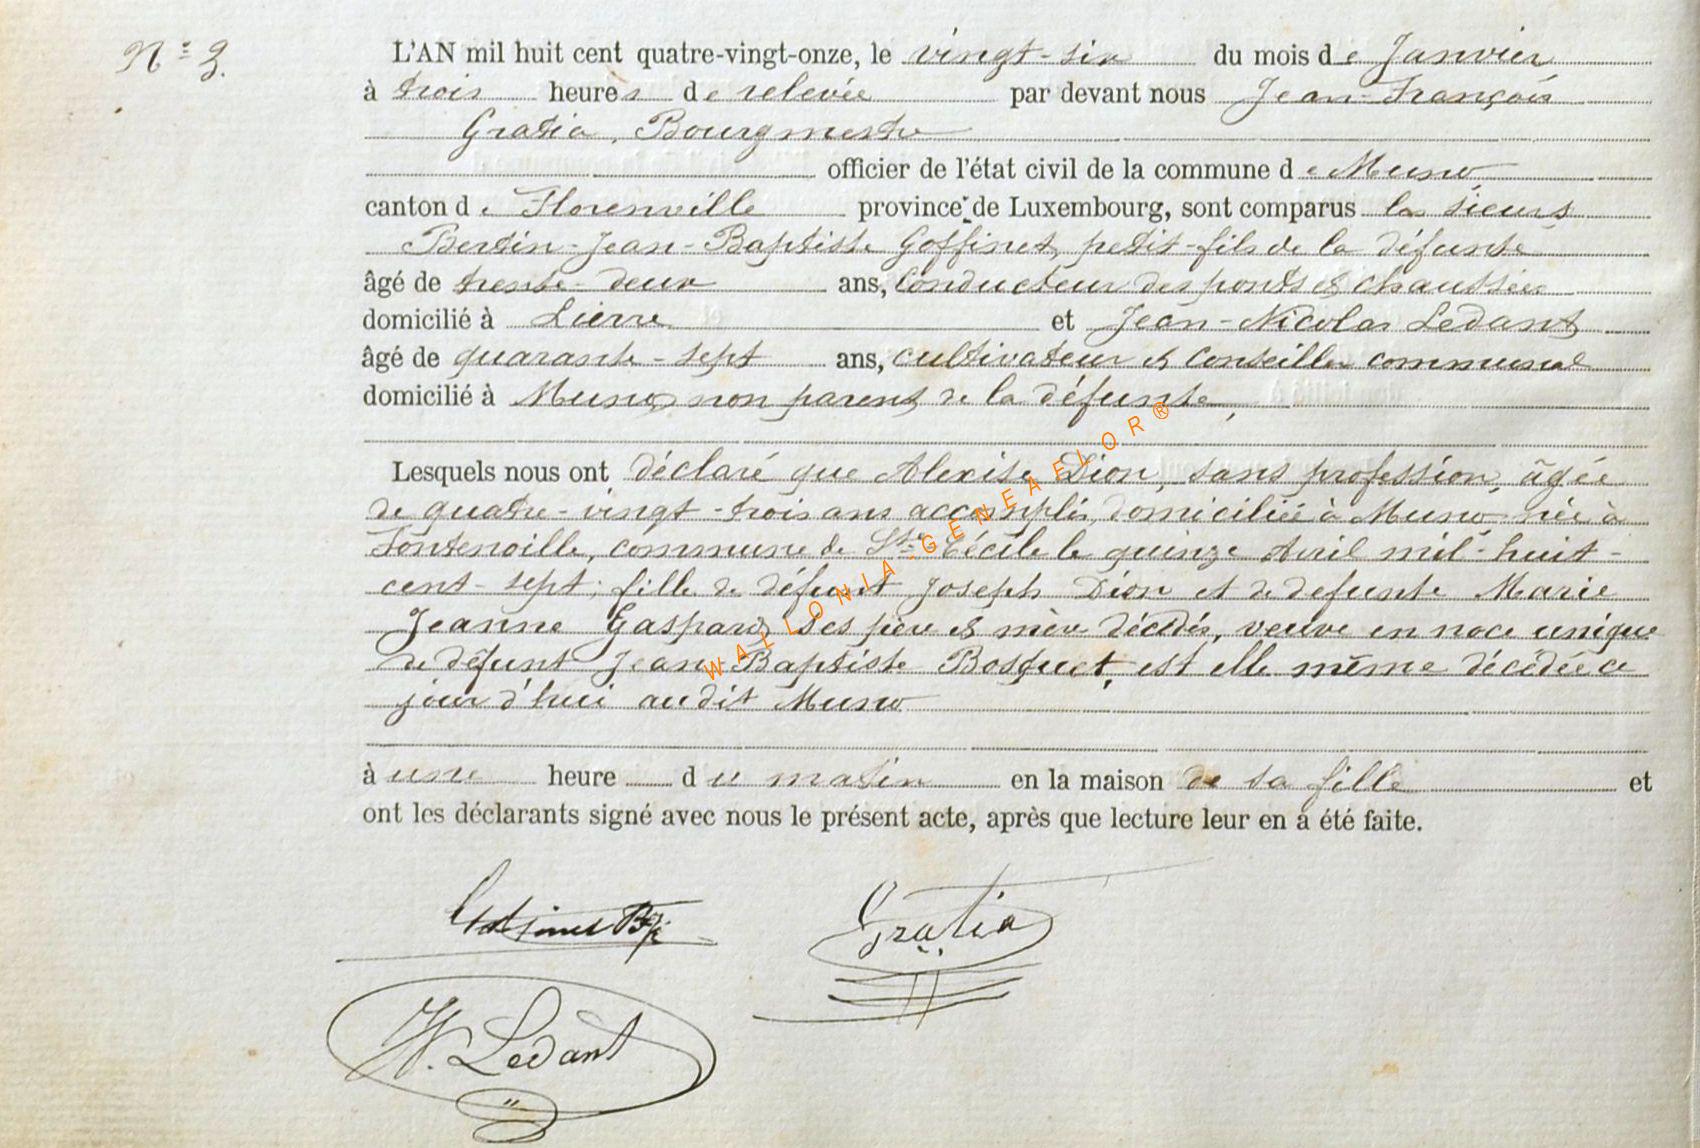 N° 3.
L'AN mil huit cent quatre-vingt-onze, le vingt-six du mois de Janvier
à trois heures de relevée par devant nous Jean-François
Gratia, Bourgmestre
officier de l'état civil de la commune de Muno
canton de Florenville province de Luxembourg, sont comparus les sieurs
Bertin-Jean-Baptiste Goffinet, petit-fils de la défunte
âgé de trente-deux ans, Conducteur des ponts & chaussées
domicilié à Lierre et Jean-Nicolas Ledant
âgé de quarante-sept ans, cultivateur & Conseiller communal
domicilié à Muno, non parent de la défunte,
Lesquels nous ont déclaré que Alexise Dion, sans profession, âgée
de quatre-vingt-trois ans accomplis, domiciliée à Muno née à
Fontenoille, commune de Ste Cécile le quinze Avril mil-huit-
cent-sept; fille de défunt Joseph Dion et de defunte Marie
Jeanne Gaspard ses père & mère décédés, veuve en noce unique
de défunt Jean-Baptiste Bosquet, est elle même décédée ce
jour d'hui audit Muno
à une heure du matin en la maison de sa fille et
ont les déclarants signé avec nous le présent acte, après que lecture leur en a été faite.
Goffinet Gratia
N. Ledant
WALLONIA-GENEAELOR®